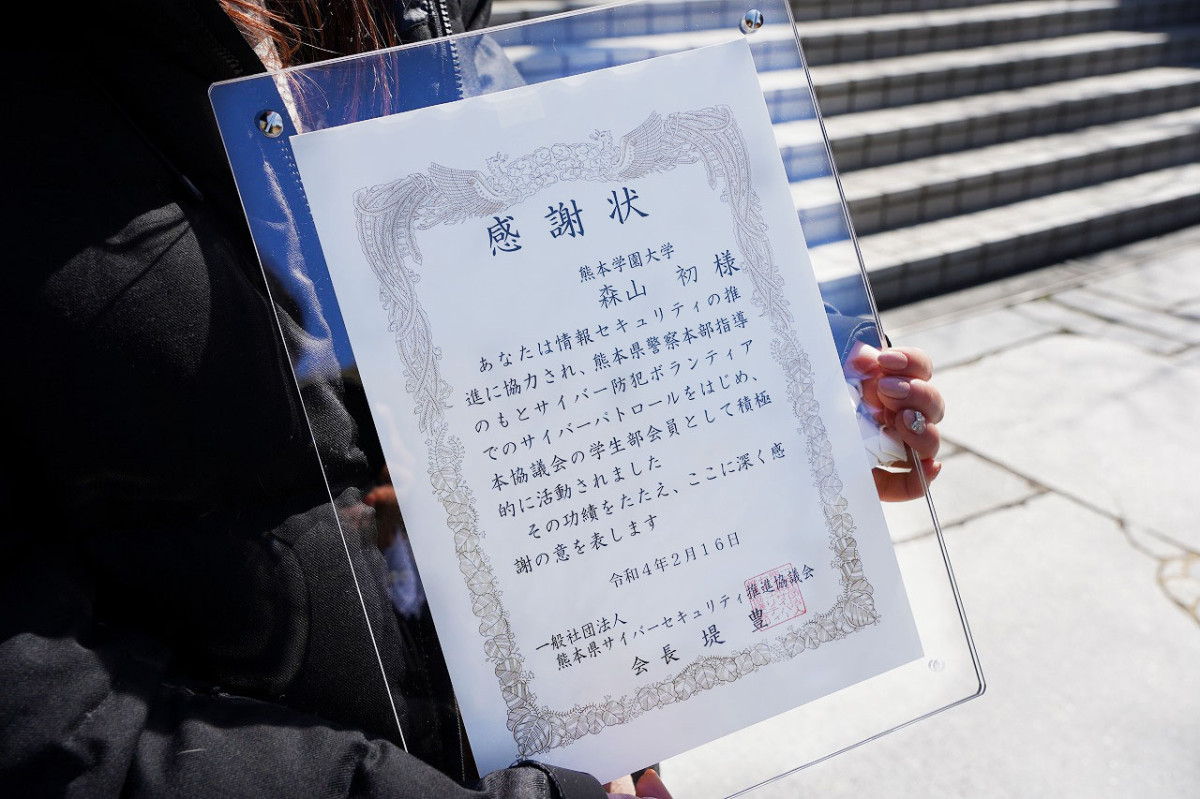 感謝状
熊本学園大学
森山 初 様
あなたは情報セキュリティの推
進に協力され、熊本県警察本部指導
のもとサイバー防犯ボランティア
でのサイバーパトロールをはじめ、
本協議会の学生部会員として積極
的に活動されました
その功績をたたえ、ここに深く感
謝の意を表します
令和4年2月16日
一般社団法人
熊本県サイバーセキュリティ推進協議会
会長 堤 豊